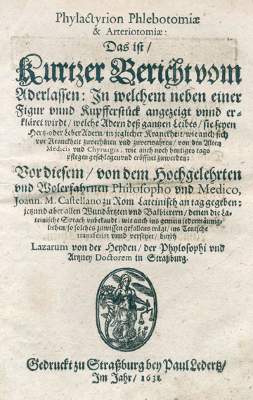 Phylactyrion Phlebotomiæ
& Arteriotomiæ:
Das ist/
Kurtzer Bericht vom
Aderlassen: Jn welchem neben einer
Figur vnnd Kupfferstück angezeigt vnnd er-
kläret wirdt/ welche Adern deß gantzen Leibes/ sie seyen
Hertz- oder Leber Adern/ in jeglicher Kranckheit/ wie auch sich
vor Kranckheit zuverhüten vnd zuverwahren/ von den Alten
Medicis vnd Chyrurgis, wie auch noch heutiges tags
pflegen geschlagen vnd eröffnet zuwerden:
Vor diesem/ von dem Hochgelehrten
vnd Wolerfahrnen Philosopho vnd Medico,
Joann. M. Castellano zu Rom Lateinisch an tag gegeben:
jetzund aber allen Wundärtzten vnd Balbierern/ denen die La-
teinische Sprach vnbekandt: wie auch ins gemein jedermännig-
lichen/ so solches zuwissen gefallens trägt/ ins Teutsche
transferirt vnnd versetzet/ durch
Lazarum von der Heyden/ der Phylosophi vnd
Artzney Doctorem in Straßburg.
Gedruckt zu Straßburg bey Paul Ledertz/
Jm Jahr/ 1631